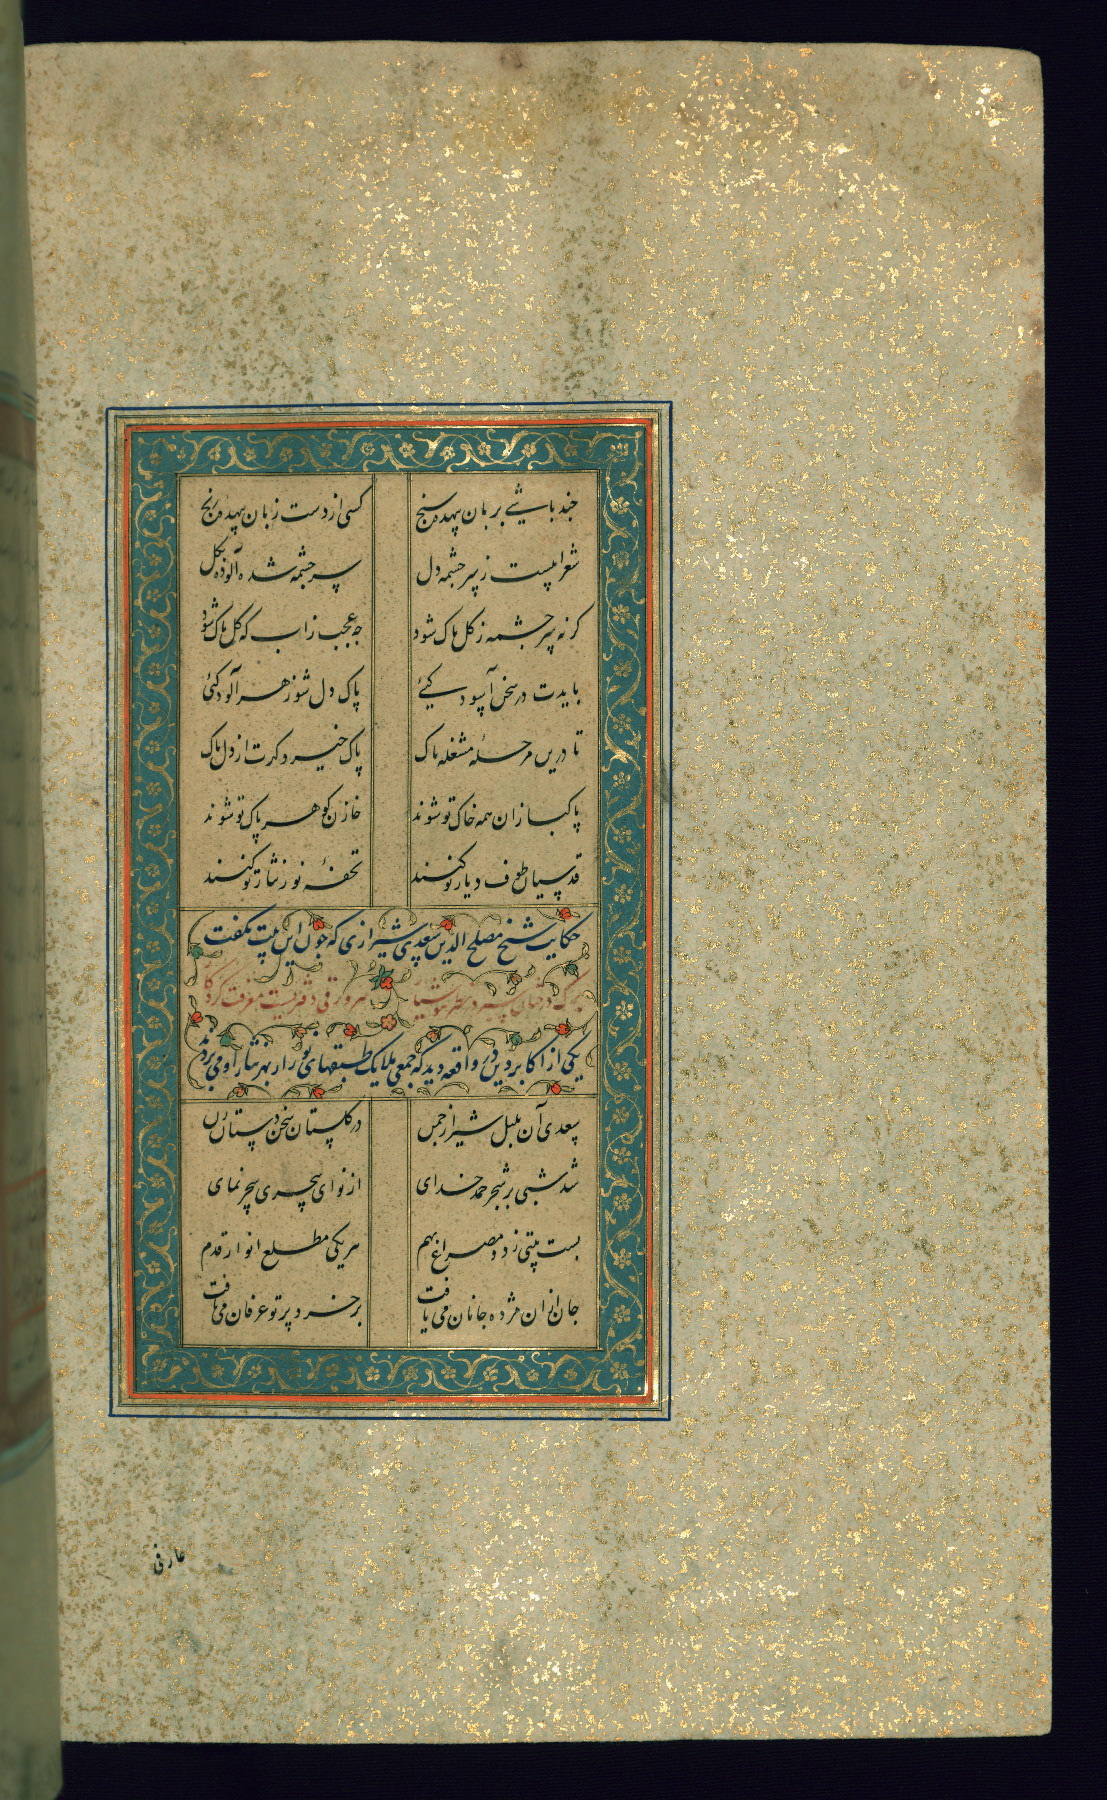 چند باشی بزبان بیهده سنج کسی از دست زبان بیهده رنج
شعر آبیست ز سرچشمه دل سرچشمه شده آلوده بگل
گر نه سرچشمه ز گل پاک شود چه عجب زاب که گل ناک شود
بایدت در سخن آسودگیی پاک دل شو ز هر آلودگیی
تا درین مرحله مشغله ناک پاک خیزد گهرت از دل پاک
پاکبازان همه خاک تو شوند خازن گوهر پاک تو شوند
قدسیان طوف دیار تو کنند تحفه نور نثار تو کنند
حکایت شیخ مصلح الدین سعدی شیرازی که چون این بیت بگفت
برگ درختان سبز در نظر هوشیار هر ورقی دفتریست معرفت کردگار
یکی از اکابر در واقعه دید که جمعی ملایک طبقهای نور از بهر نثار او می بردند
سعدی آن بلبل شیراز چمن در گلستان سخن دستان زن
شد شبی بر شجر حمد خدای از نوای سحری سحر نمای
بست بیتی ز دو مصراع بهم هر یکی مطلع انوار قدم
جان ازان مژده جانان می یافت بر خرد پرتو عرفان می تافت
عارفی